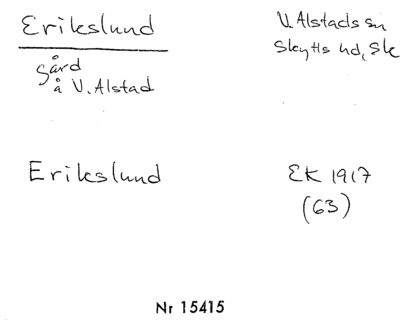 Erikslund
V. Alstads sn
Skytts hd, Sk
gård
å V. Alstad
Erikslund
EK 1917
(63)
Nr 15415